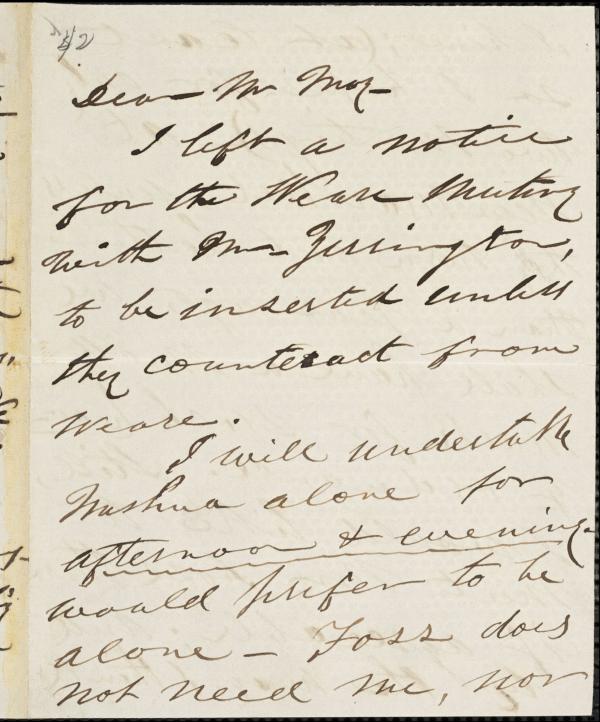 Dear Mr May—
I left a notice
for the Weare Meeting
with Mr Yerrington,
to be inserted unless
they counteract from
Weare.
I will undertake
Nashua alone for
afternoon & evening—
would prefer to be
alone — Foss does
not need me, nor